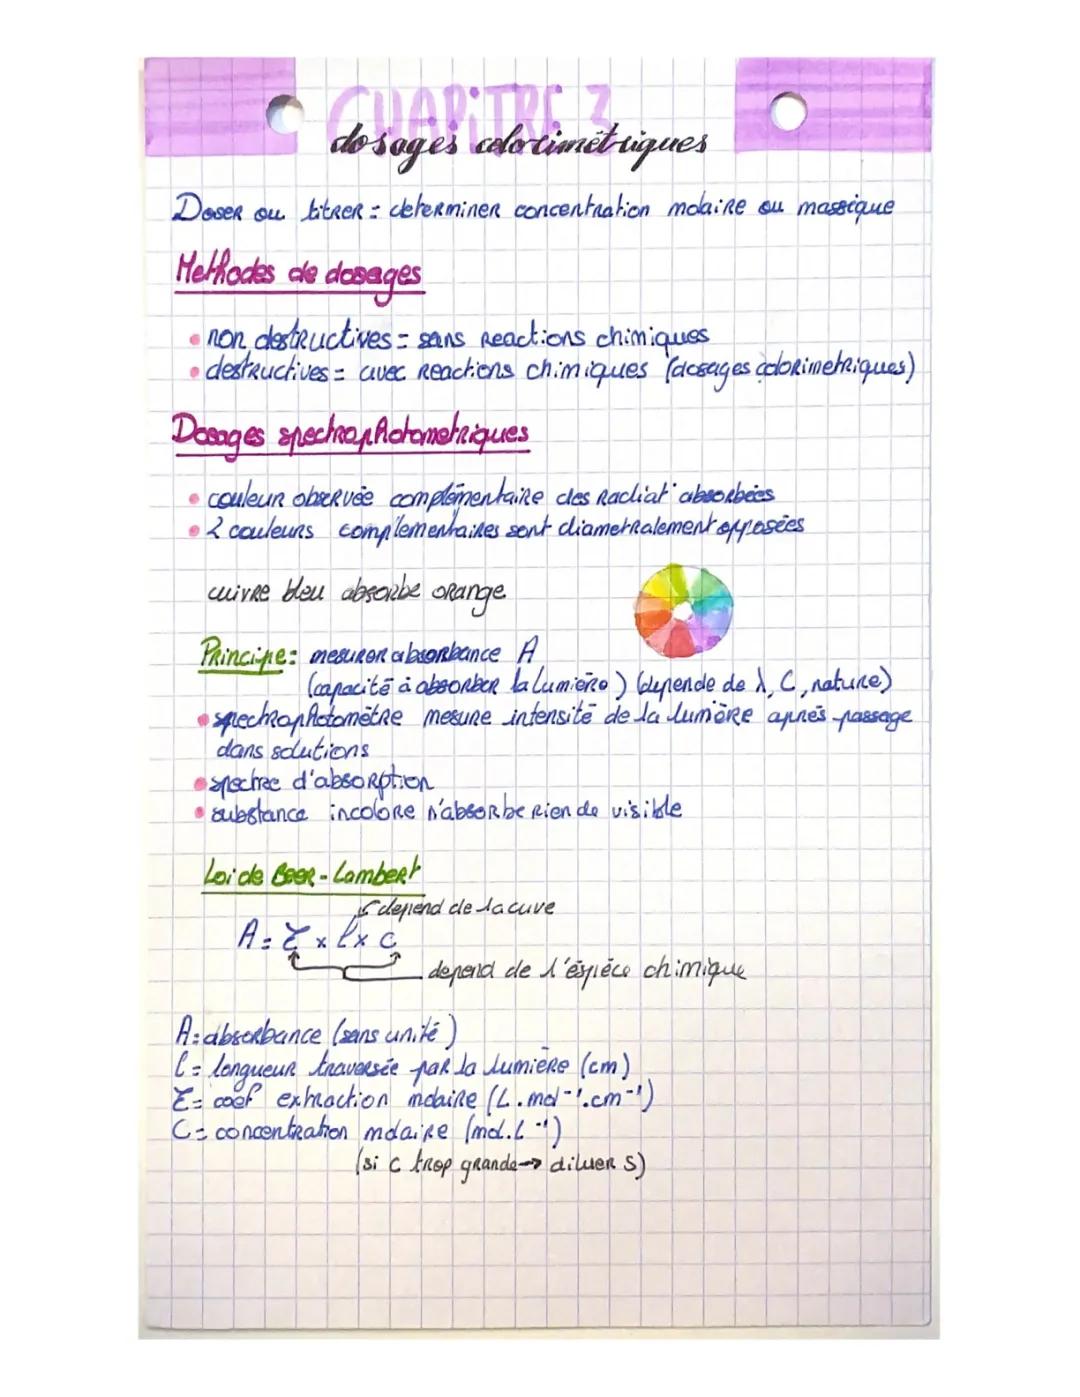 CHAPiTRE 3
dosages colorimétriques
Doser ou titrer = determiner concentration molaire ou massique
Methodes de dosages
• non destructives = sans reactions chimiques
• destructives = avec reactions chimiques (dosages colorimetriques)
Dosages spectrophotometriques
• couleur observée complémentaire des radiat° absorbées
• 2 couleurs complementaires sont diametralement opposées
cuivre bleu absorbe orange
Principe: mesurer absorbance A
(capacité à absorber la lumière) (depende de λ, C, nature)
• spectrophotomètre mesure intensité de la lumière après passage
dans solutions
• spectre d'absorption
• substance incolore n'absorbe rien de visible
Loi de Beer-Lambert
depend de la cuve
A = Ɛ x l x c
depend de l'éspièce chimique
A: absorbance (sans unité)
l = longueur traversée par la lumière (cm)
Ɛ = coef extraction molaire (L.mol⁻¹.cm⁻¹)
C = concentration molaire (mol.L⁻¹)
(si c trop grande → diluer S)